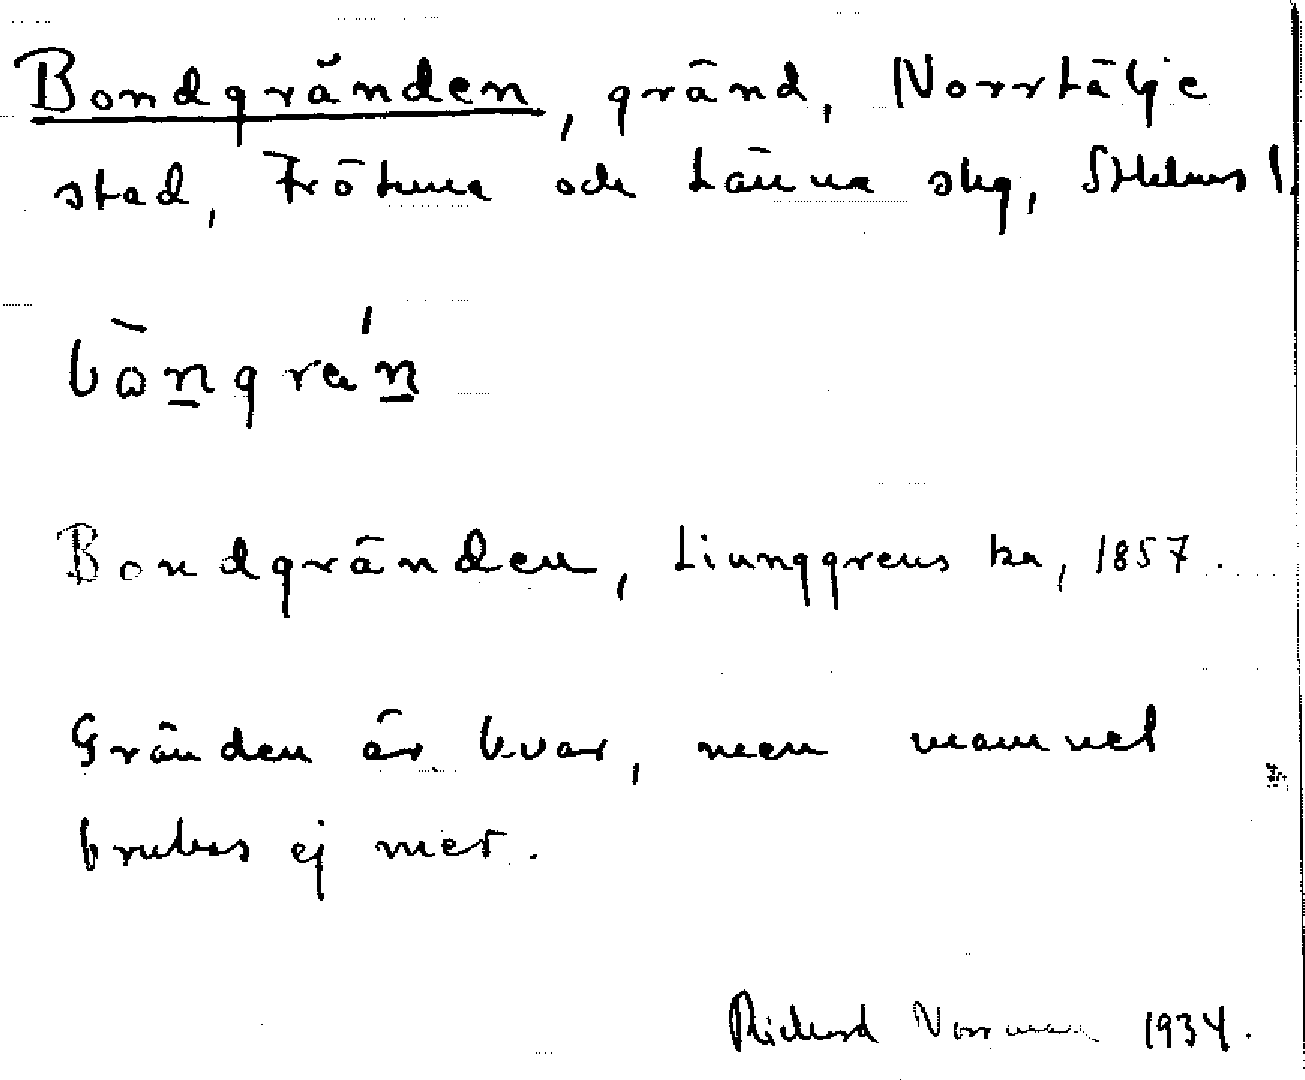 Bondgränden, gränd, Norrtälje
stad, Frötuna och Länna skg, Sthlms l.
bòngrán
Bondgränden, Ljunggrens ka, 1857.
Gränden är kvar, men namnet
brukas ej mer.
Richard Norrman 1934.